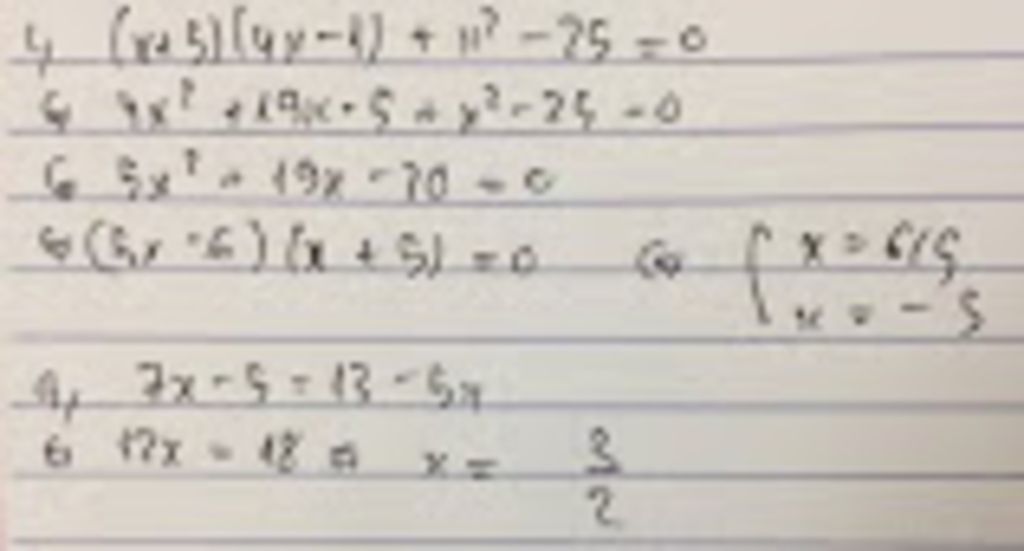 (x+5)(4x-1) + x² - 25 = 0
⇔ 4x² + 19x - 5 + x² - 25 = 0
⇔ 5x² + 19x - 30 = 0
⇔ (5x - 6)(x + 5) = 0 ⇔ [ x = 6/5
x = -5
7x - 5 = 13 - 5x
⇔ 12x = 18 ⇔ x = 3/2